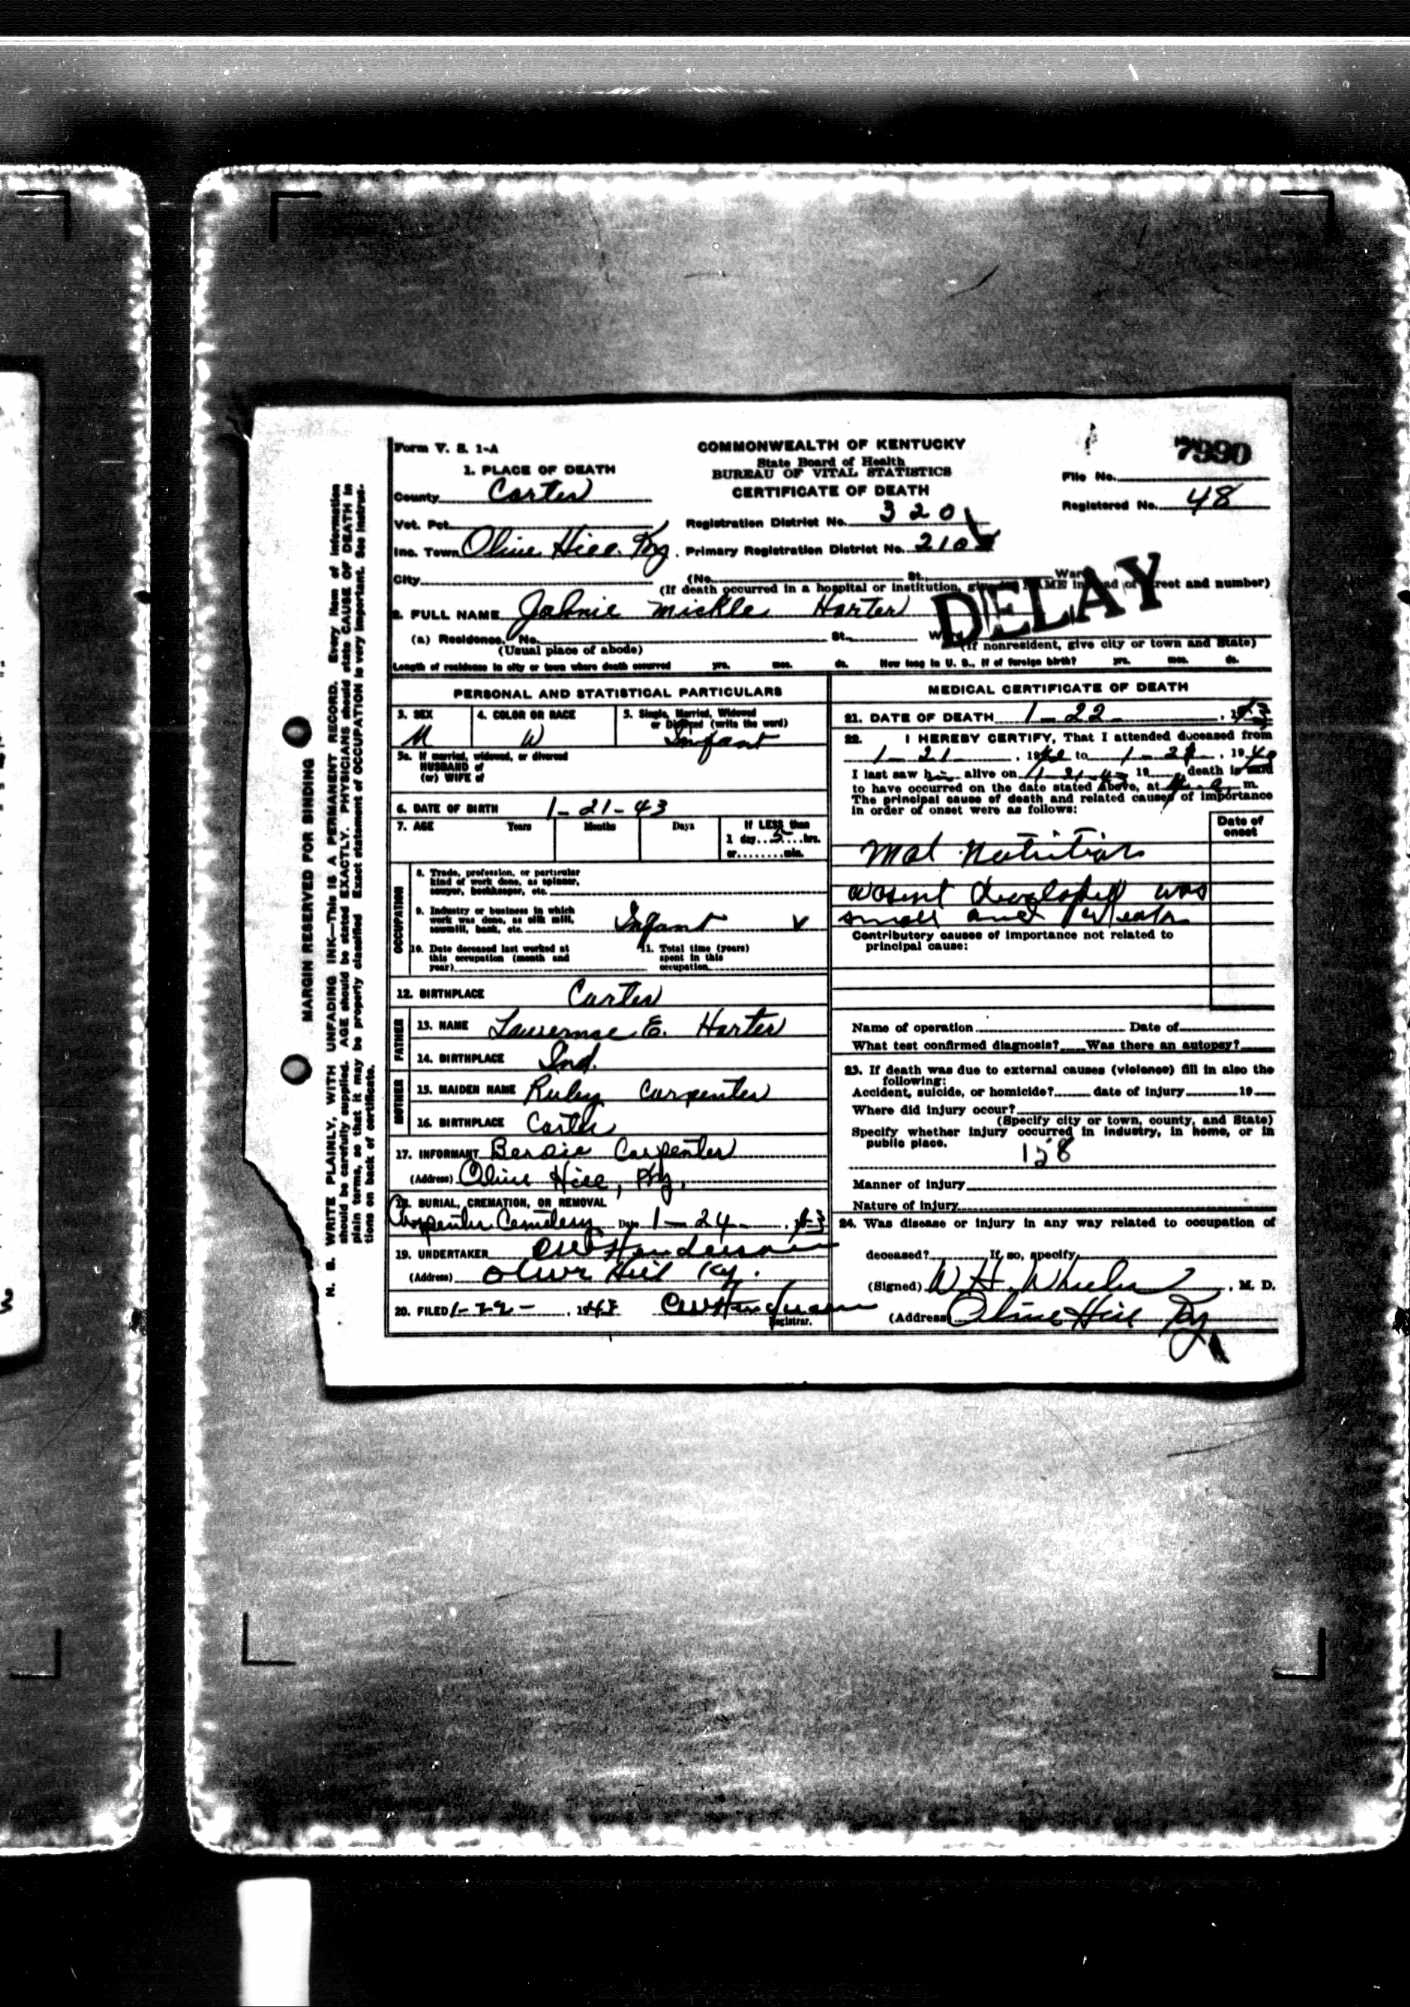 Form V. S. 1-A
COMMONWEALTH OF KENTUCKY
State Board of Health
BUREAU OF VITAL STATISTICS
CERTIFICATE OF DEATH
File No. 7990
Registered No. 48
1. PLACE OF DEATH
County Carter
Vot. Pct.
Registration District No. 320
Inc. Town Olive Hill. Ky. Primary Registration District No. 210
City (No. St. Ward
(If death occurred in a hospital or institution, give its NAME instead of street and number)
DELAY
2. FULL NAME Johnie Mickle Harter
(a) Residence. No. St.
(Usual place of abode) (If nonresident, give city or town and State)
Length of residence in city or town where death occurred yrs. mos. ds. How long in U. S., if of foreign birth? yrs. mos. ds.
PERSONAL AND STATISTICAL PARTICULARS
3. SEX 4. COLOR OR RACE 5. Single, Married, Widowed
or Divorced (write the word)
M W Infant
5a. If married, widowed, or divorced
HUSBAND of
(or) WIFE of
6. DATE OF BIRTH 1-21-43
7. AGE Years Months Days If LESS than
1 day...5...hrs.
or........min.
OCCUPATION
8. Trade, profession, or particular
kind of work done, as spinner,
sawyer, bookkeeper, etc.
9. Industry or business in which
work was done, as silk mill,
sawmill, bank, etc. Infant v
10. Date deceased last worked at
this occupation (month and
year)
11. Total time (years)
spent in this
occupation
12. BIRTHPLACE Carter
FATHER
13. NAME Lawernse E. Harter
14. BIRTHPLACE Ind.
MOTHER
15. MAIDEN NAME Ruby Carpenter
16. BIRTHPLACE Carter
17. INFORMANT Berdie Carpenter
(Address) Olive Hill, Ky.
18. BURIAL, CREMATION, OR REMOVAL
Carpenter Cemetery Date 1-24-, 43
19. UNDERTAKER CW Henderson
(Address) Olive Hill Ky.
20. FILED 1-22-, 1943 CW Henderson
Registrar.
MEDICAL CERTIFICATE OF DEATH
21. DATE OF DEATH 1-22, 43
22. I HEREBY CERTIFY, That I attended deceased from
1-21-, 19 to 1-, 19
I last saw him alive on 1-21-43 19 death is said
to have occurred on the date stated above, at m.
The principal cause of death and related causes of importance
in order of onset were as follows:
Date of
onset
Mal nutrition
wasent developed was
small and weak
Contributory causes of importance not related to
principal cause:
Name of operation Date of
What test confirmed diagnosis? Was there an autopsy?
23. If death was due to external causes (violence) fill in also the
following:
Accident, suicide, or homicide? date of injury 19
Where did injury occur?
(Specify city or town, county, and State)
Specify whether injury occurred in industry, in home, or in
public place.
158
Manner of injury
Nature of injury
24. Was disease or injury in any way related to occupation of
deceased? If so, specify
(Signed) W H Wheeler, M. D.
(Address) Olive Hill Ky
MARGIN RESERVED FOR BINDING
N. B. WRITE PLAINLY, WITH UNFADING INK—THIS IS A PERMANENT RECORD. Every item of information
should be carefully supplied. AGE should be stated EXACTLY. PHYSICIANS should state CAUSE OF DEATH in
plain terms, so that it may be properly classified. Exact statement of OCCUPATION is very important. See instruc-
tions on back of certificate.